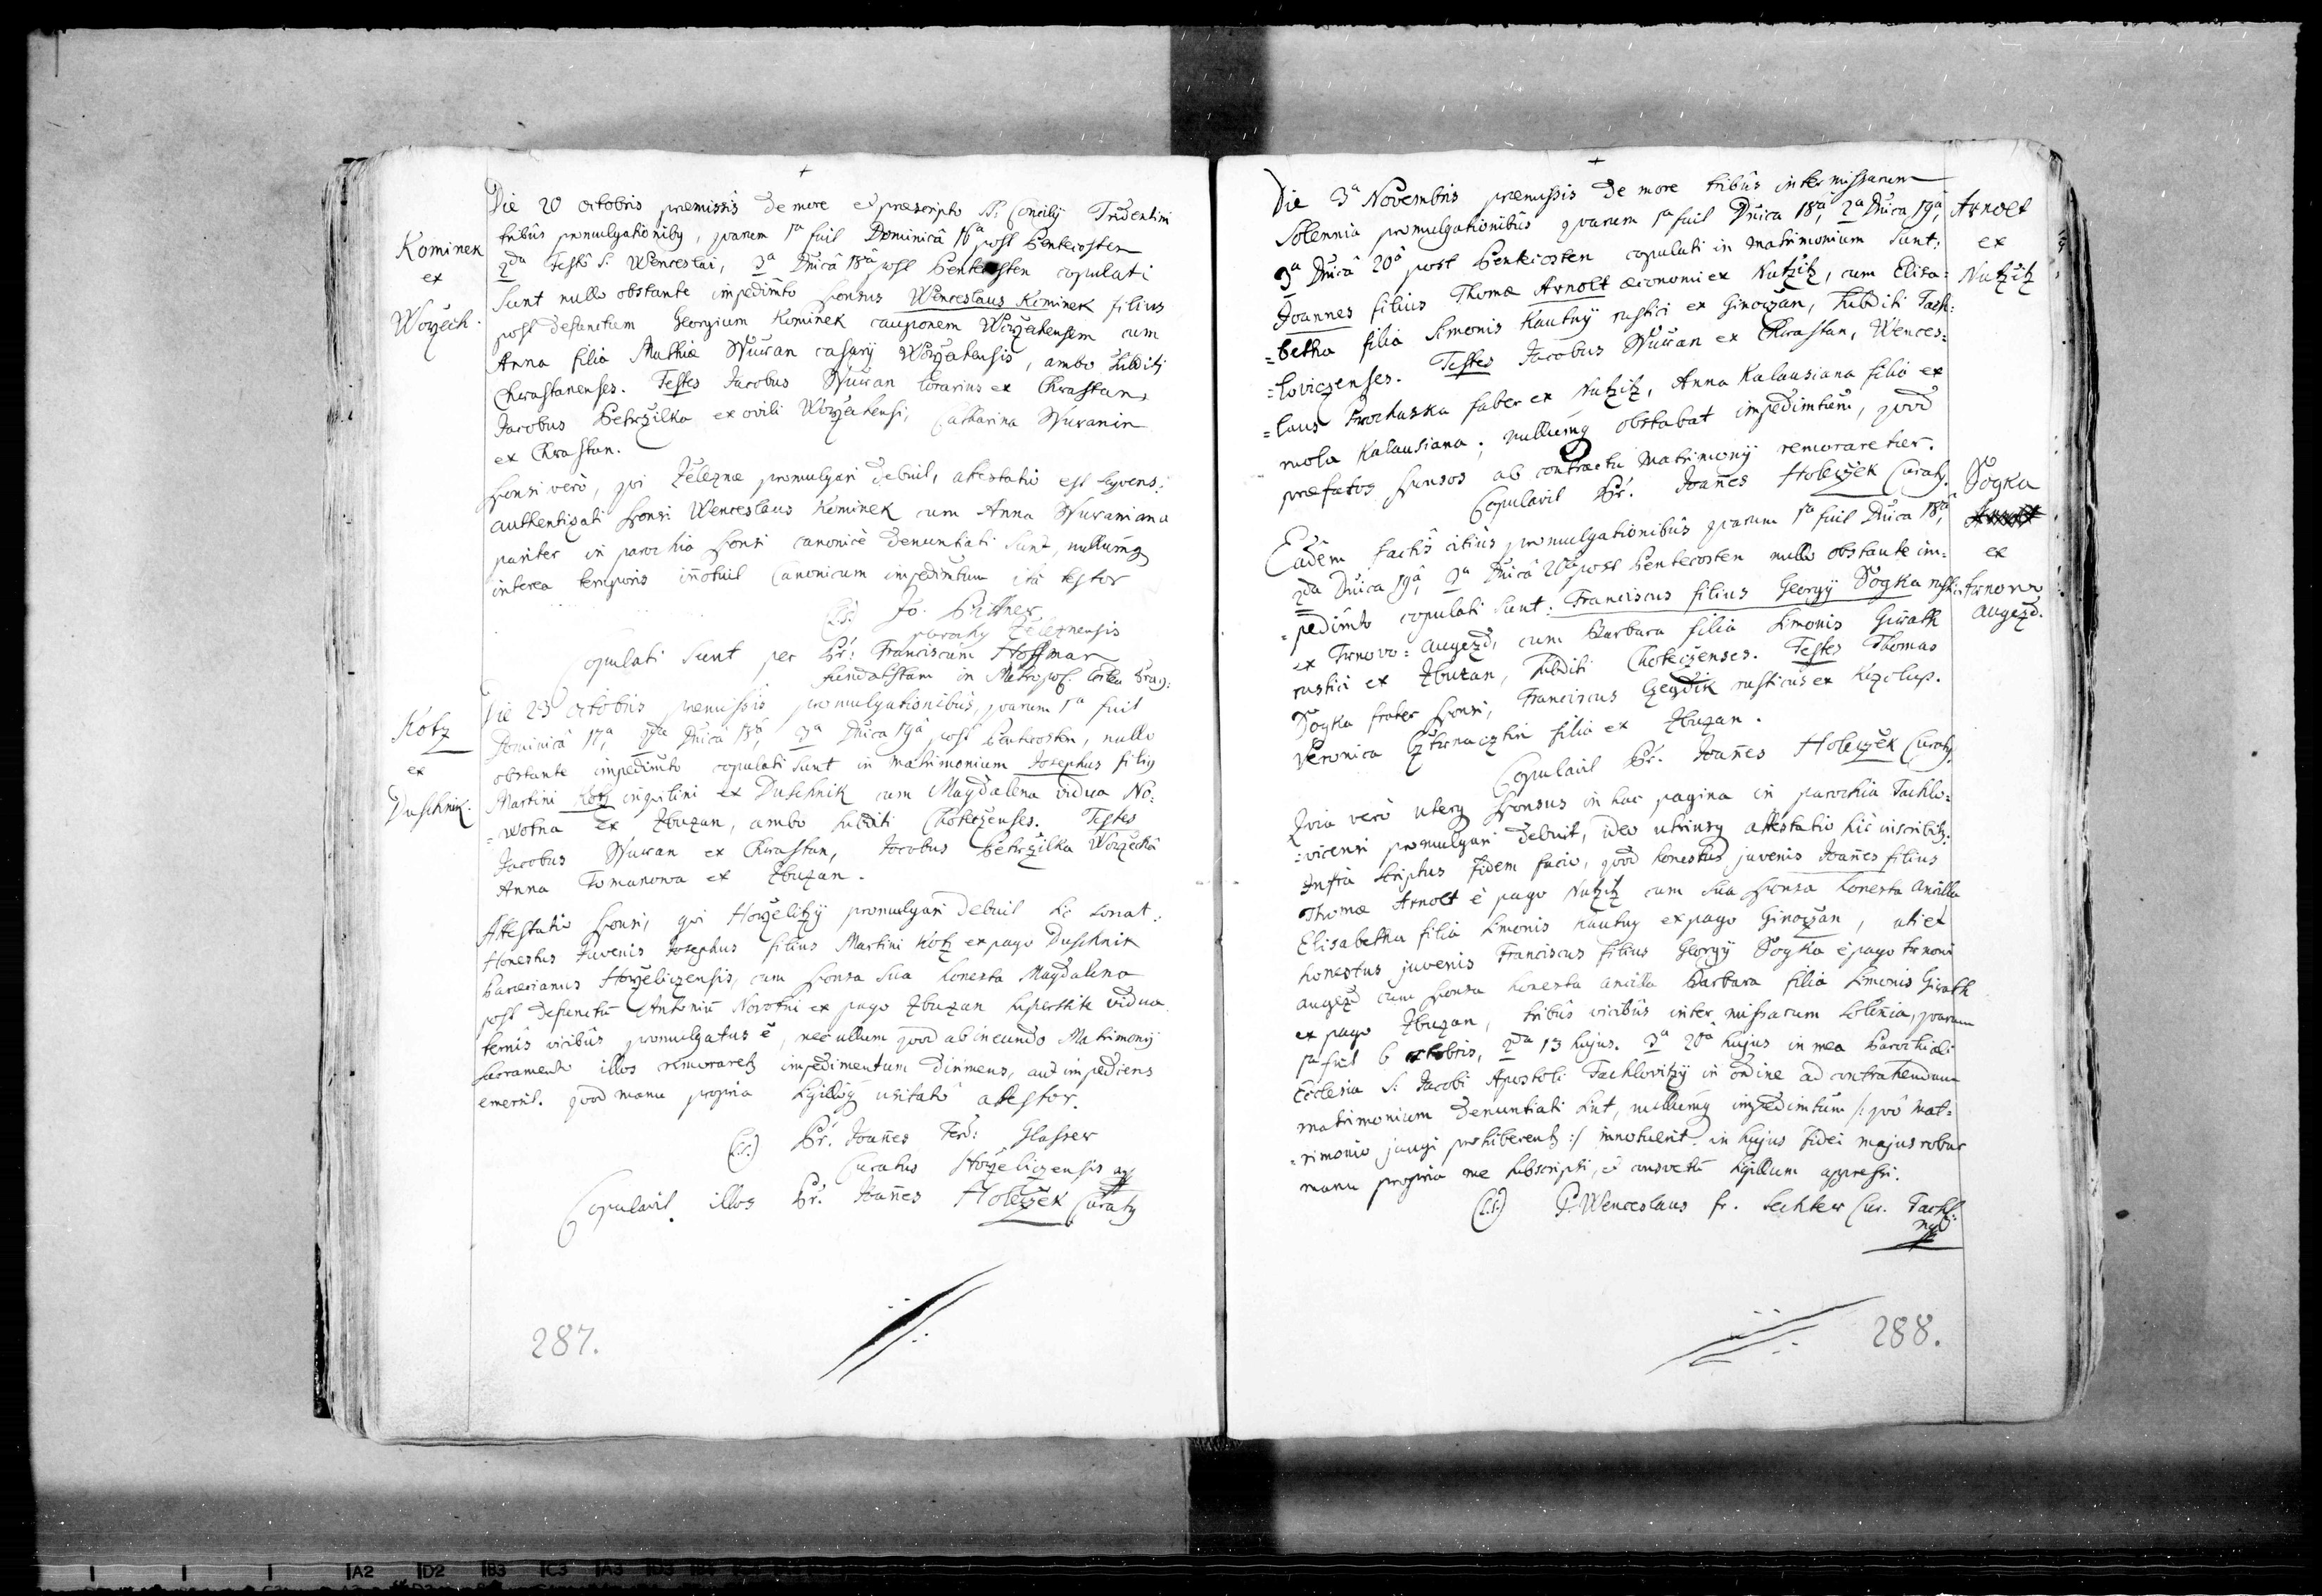 Die 20 octobris præmissis de more et præscripto SS. Concilij Tridentini
tribus promulgationibq, quarum 1a fuit Dominica 16a post Pentecosten
2da Festo S. Wenceslai, 3a Dnica 18a post Pentecosten copulati
sunt nullo obstante impedimto sponsus Wenceslaus Kominek filius
post defunctum Georgium Kominek cauponem Worzechensem cum
Anna filia Mathiæ Wuwran casarij Worzechensis, ambo subditi
Chrastanenses. Testes Jacobus Wuwran ex Chrastan,
Jacobus Petrzilka ex ovili Worzechensi, Catharina Wuwranin
ex Chrastan.
Kominek
ex
Worzech.
Sponsi verò, qui Zeleznæ promulgari debuit, attestatio est sequens:
authentizati sponsi Wenceslaus Kominek cum Anna Wuwraniana
pariter in parochia sponsi canonicè denuntiati sunt, nullumq
interea temporis innotuit Canonicum impedimtum ita testor
(L.S.) Jo. Bittner
parochq Zeleznensis
Copulati sunt per Pr: Franciscum Hoffman
fundatistam in
Die 23 octobris præmissis promulgationibus, quarum 1a fuit
Dominica 17a, 2da Dnica 18a, 3a Dnica 19a post Pentecosten, nullo
obstante impedimto copulati sunt in matrimonium Josephus filiq
Martini Kotz inquilini ex Duschnik cum Magdalena vidua No:
=wotna ex Zbuzan, ambo subditi Choteczenses. Testes
Jacobus Wuwran ex Chrastan, Jacobus Petrzilka Worzecha
Anna Tomanowa ex Zbuzan.
Kotz
ex
Duschnik.
Attestatio sponsi, qui Horzelitzij promulgari debuit sic sonat:
Honestus Juvenis Josephus filius Martini Kotz ex pago Duschnik
Parœcianus Horzeliczensis, cum sponsa sua honesta Magdalena
post defunctū Antoniū Novotni ex pago Zbuzan superstite vidua
ternis vicibus promulgatus ē, nec ullum quod ab ineundo Matrimonij
sacramento illos remoraretq impedimentum dirimens, aut impediens
emersit. quod manu propria sigilloq usitato attestor.
(L.S.) Pr. Joannes Ferd: Glasser
Curatus Horzeliczensis mp
Copulavit illos Pr. Joannes Holeczek Curatq
287.
Die 3a Novembris præmissis de more tribus inter missarum
Solennia promulgationibus quarum 1a fuit Dnica 18a, 2a Dnica 19a,
3a Dnica 20a post Pentecosten copulati in matrimonium sunt:
Joannes filius Thomæ Arnolt œconomi ex Nutzitz, cum Elisa=
=betha filia Simonis Kautnÿ rustici ex Ginoczan, subditi Tach:
=loviczenses. Testes Jacobus Wuwran ex Chrastan, Wences:
=laus Prochaska faber ex Nutzitz, Anna Kalausiana filia ex
mola Kalausiana; nullumq obstabat impedimtum, quod
præfatos sponsos ab contractu Matrimonij remoraretur.
Copulavit Pr. Joannes Holeczek Curatq.
Arnolt
ex
Nutzitz
Eadem factis citius promulgationibus quarum 1a fuit Dnica 18a,
2da Dnica 19a, 3a Dnica 20a post Pentecosten nullo obstante im=
=pedimto copulati sunt: Franciscus filius Georgij Sogka rustici
ex Trnovo=augezd, cum Barbara filia Simonis Girath
rustici ex Zbuzan, subditi Choteczenses. Testes Thomas
Sogka frater sponsi, Franciscus Czegdik rusticus ex
Veronica filia ex Zbuzan.
Copulavit Pr. Joannes Holeczek Curatq.
Sogka
ex
Trnowo
augezd.
Quia verò uterq sponsus in hac pagina in parochia Tachlo=
=vicensi promulgari debuit, ideo utriusq attestatio hic inscribitq:
Infra scriptus fidem facio, quod honestus juvenis Joannes filius
Thomæ Arnolt è pago Nutzitz cum sua sponsa honesta ancilla
Elisabetha filia Simonis Kautny ex pago Ginoczan, uti et
honestus juvenis Franciscus filius Georgij Sogka è pago Trnovo
augezd cum sponsa honesta ancilla Barbara filia Simonis Girath
ex pago Zbuzan, tribus vicibus inter missarum solenia, quarum
1a fuit 6 octobris, 2da 13 hujus. 3a 20a hujus in mea Parochiali
Ecclesia S. Jacobi Apostoli Tachlovitzij in ordine ad contrahendum
matrimonium denuntiati sint, nullumq impedimtum /: quô mat=
=rimonio jungi prohiberentq :/ innotuerit. in hujus fidei majus robur
manu propria me subscripsi, et consvetū sigillum appressi.
(L.S.) P. Wenceslaus fr. Sechter Cur. Tachl:
mp
288.